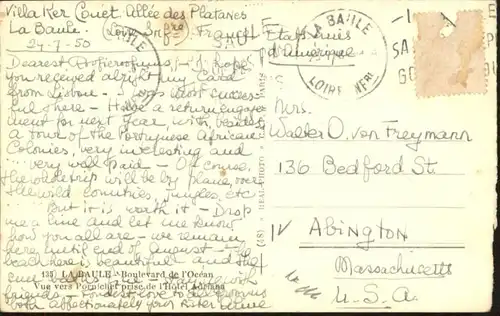 Villa Ker Couet Allée des Platanes
La Baule. Loire Infre France Etats Unis
24-7-50 d'Amerique
Dearest I hope
you received alright my Card
from Lisbon. I was most success-
ful there - Have a return engage-
ment for next year with, besides
a tour of the Portuguese African
Colonies, very interesting and
very well paid - Of course,
the whole trip will be by plane, over
the wild Countries, jungles, etc
But it is worth it - Drop
me a line and let me know
how you all are - we remain
here until end of August - the
beach here is beautiful and the
with
friends - Fondest love to
both affectionately your Sister
135) LA BAULE - Boulevard de l'Océan
Vue vers Pornichet prise de l'Hôtel Adriana
REAL PHOTO
LA BAULE
LOIRE INFRE
Mrs.
Walter O. von Freymann
136 Bedford St.
Abington
Massachusetts
U.S.A.